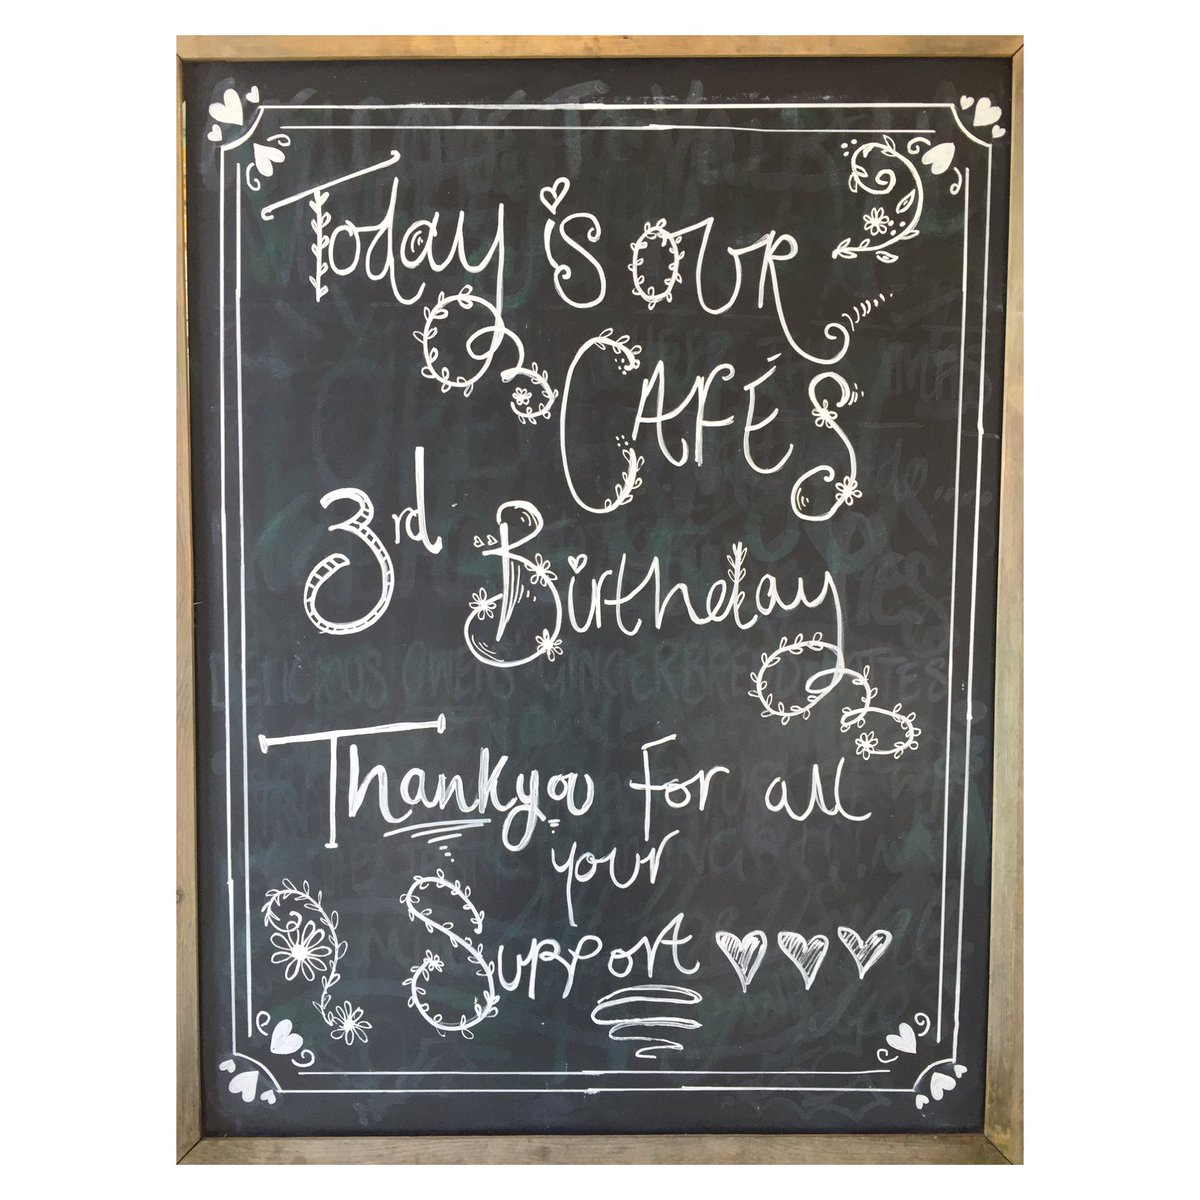 Today is our
Café's
3rd Birthday
Thankyou for all
your
Support